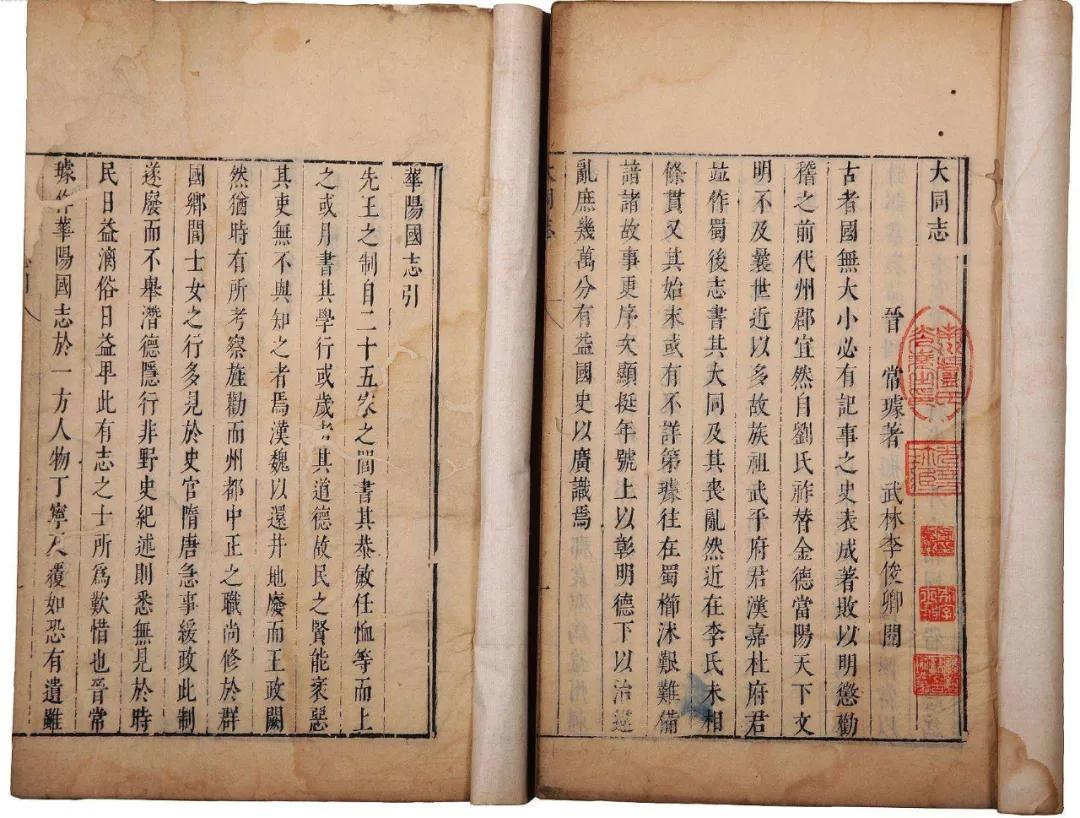 大同志
晉 常璩著 武林李俊卿閱
古者國無大小必有記事之史表成著敗以明懲勸
稽之前代州郡宜然自劉氏祚替金德當陽天下文
明不及曩世近以多故族祖武平府君漢嘉杜府君
並作蜀後志書其大同及其喪亂然近在李氏未相
條貫又其始末或有不詳第璩往在蜀櫛沐艱難備
諳諸故事更序次顯挺年號上以彰明德下以治違
亂庶幾萬分有益國史以廣識焉
華陽國志引
先王之制自二十五家之閭書其恭敏任恤等而上
之或月書其學行或歲考其道德故民之賢能衺惡
其吏無不與知之者焉漢魏以還井地廢而王政闕
然猶時有所考察旌勸而州都中正之職尚修於群
國鄉閭士女之行多見於史官隋唐急事緩政此制
遂廢而不舉潛德隱行非野史紀述則悉無見於時
民日益漓俗日益卑此有志之士所爲歎惜也晉常
璩作華陽國志於一方人物丁寧反覆如恐有遺雖